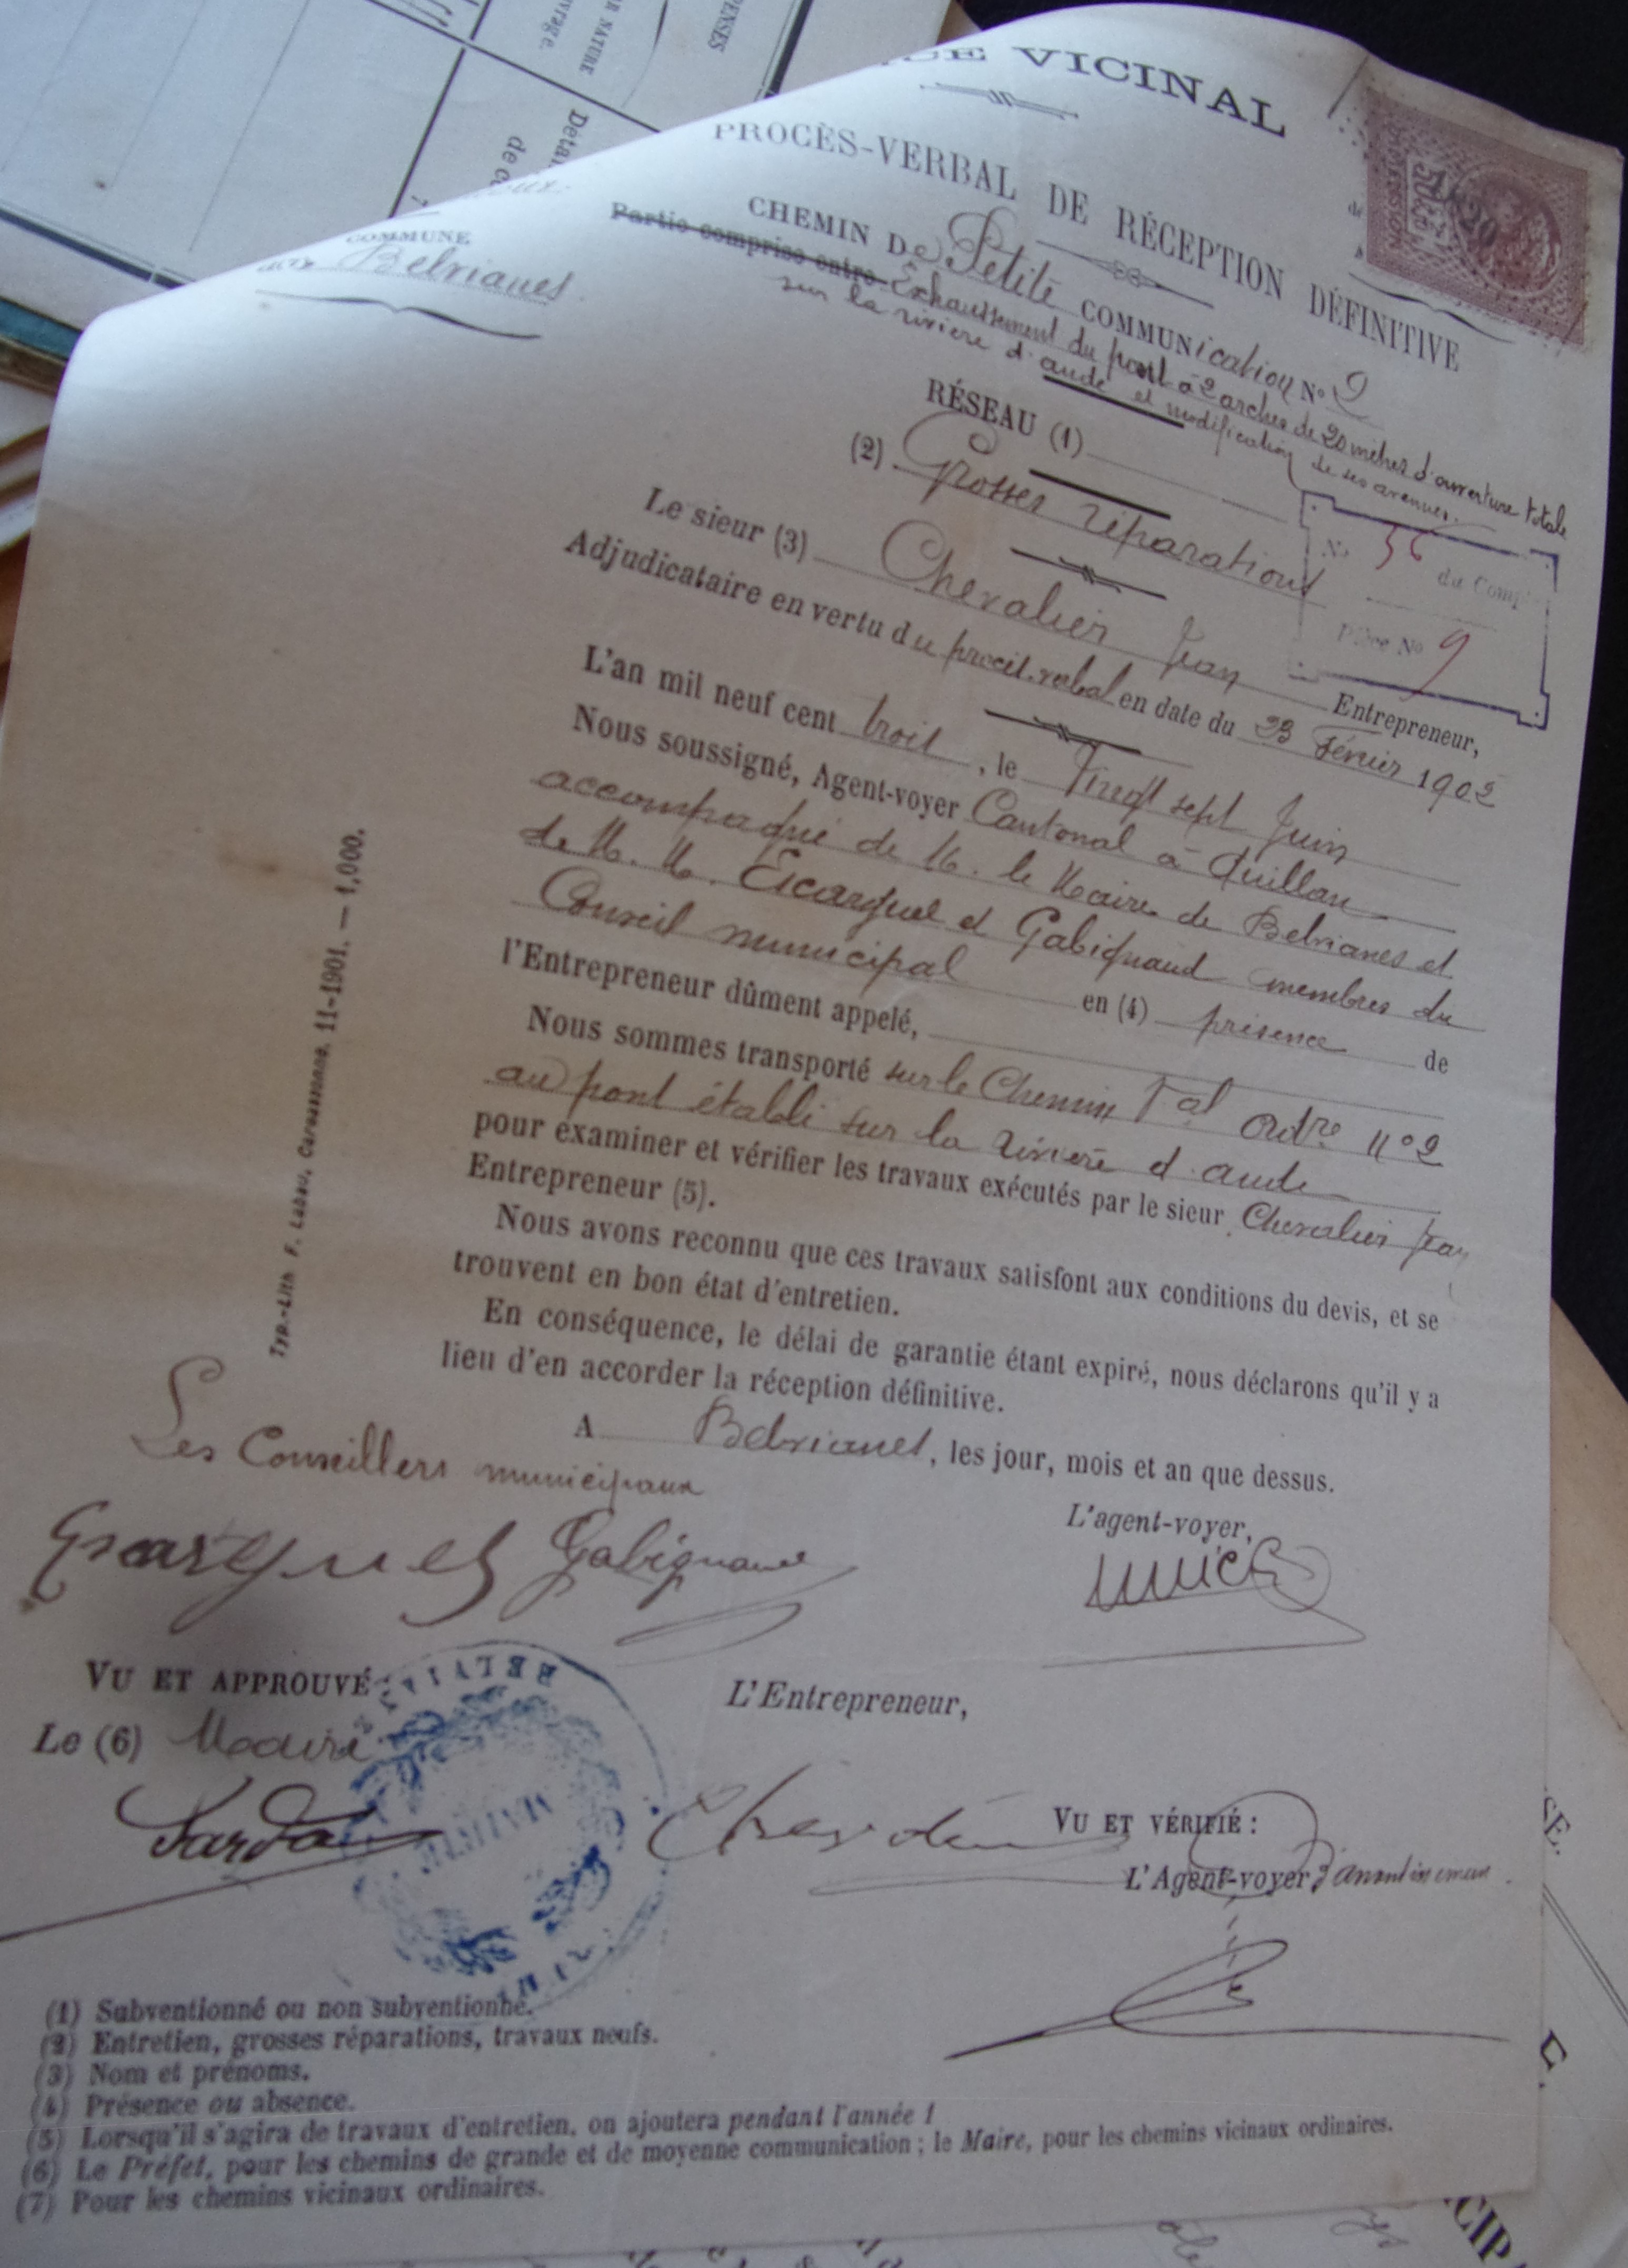 VICINAL
PROCÈS-VERBAL DE RÉCEPTION DÉFINITIVE
COMMUNE
Belvianes
CHEMIN De Petite COMMUNication N° 2
Partie comprise entre Exhaussement du pont à 2 arches de 20 mètres d'ouverture totale
sur la rivière d'aude et modification de ses avenues.
RÉSEAU (1)
(2) Grosses réparations
N° 56 du Comp
Pièce N° 9
Le sieur (3) Chevalier Jean Entrepreneur,
Adjudicataire en vertu du procès-verbal en date du 23 Février 1902
L'an mil neuf cent trois, le Vingt sept Juin
Nous soussigné, Agent-voyer Cantonal à Quillan
accompagné de M. le Maire de Belvianes et
de M. M. Escarguel et Gabignaud membres du
Conseil municipal en (4) présence de
l'Entrepreneur dûment appelé,
Nous sommes transporté sur le Chemin Val Ordre N° 2
au pont établi sur la rivière d'aude
pour examiner et vérifier les travaux exécutés par le sieur Chevalier Jean
Entrepreneur (5).
Nous avons reconnu que ces travaux satisfont aux conditions du devis, et se
trouvent en bon état d'entretien.
En conséquence, le délai de garantie étant expiré, nous déclarons qu'il y a
lieu d'en accorder la réception définitive.
A Belvianes, les jour, mois et an que dessus.
Typ.-Lith F. Labau, Carcassonne. 11-1901. — 1,000.
Les Conseillers municipaux
L'agent-voyer,
Escarguel Gabignaud
VU ET APPROUVÉ
Le (6) Maire
L'Entrepreneur,
Sarda
VU ET VÉRIFIÉ :
L'Agent-voyer d'arrondissement
BELVIA
MAIRIE
(1) Subventionné ou non subventionné.
(2) Entretien, grosses réparations, travaux neufs.
(3) Nom et prénoms.
(4) Présence ou absence.
(5) Lorsqu'il s'agira de travaux d'entretien, on ajoutera pendant l'année 1
(6) Le Préfet, pour les chemins de grande et de moyenne communication ; le Maire, pour les chemins vicinaux ordinaires.
(7) Pour les chemins vicinaux ordinaires.